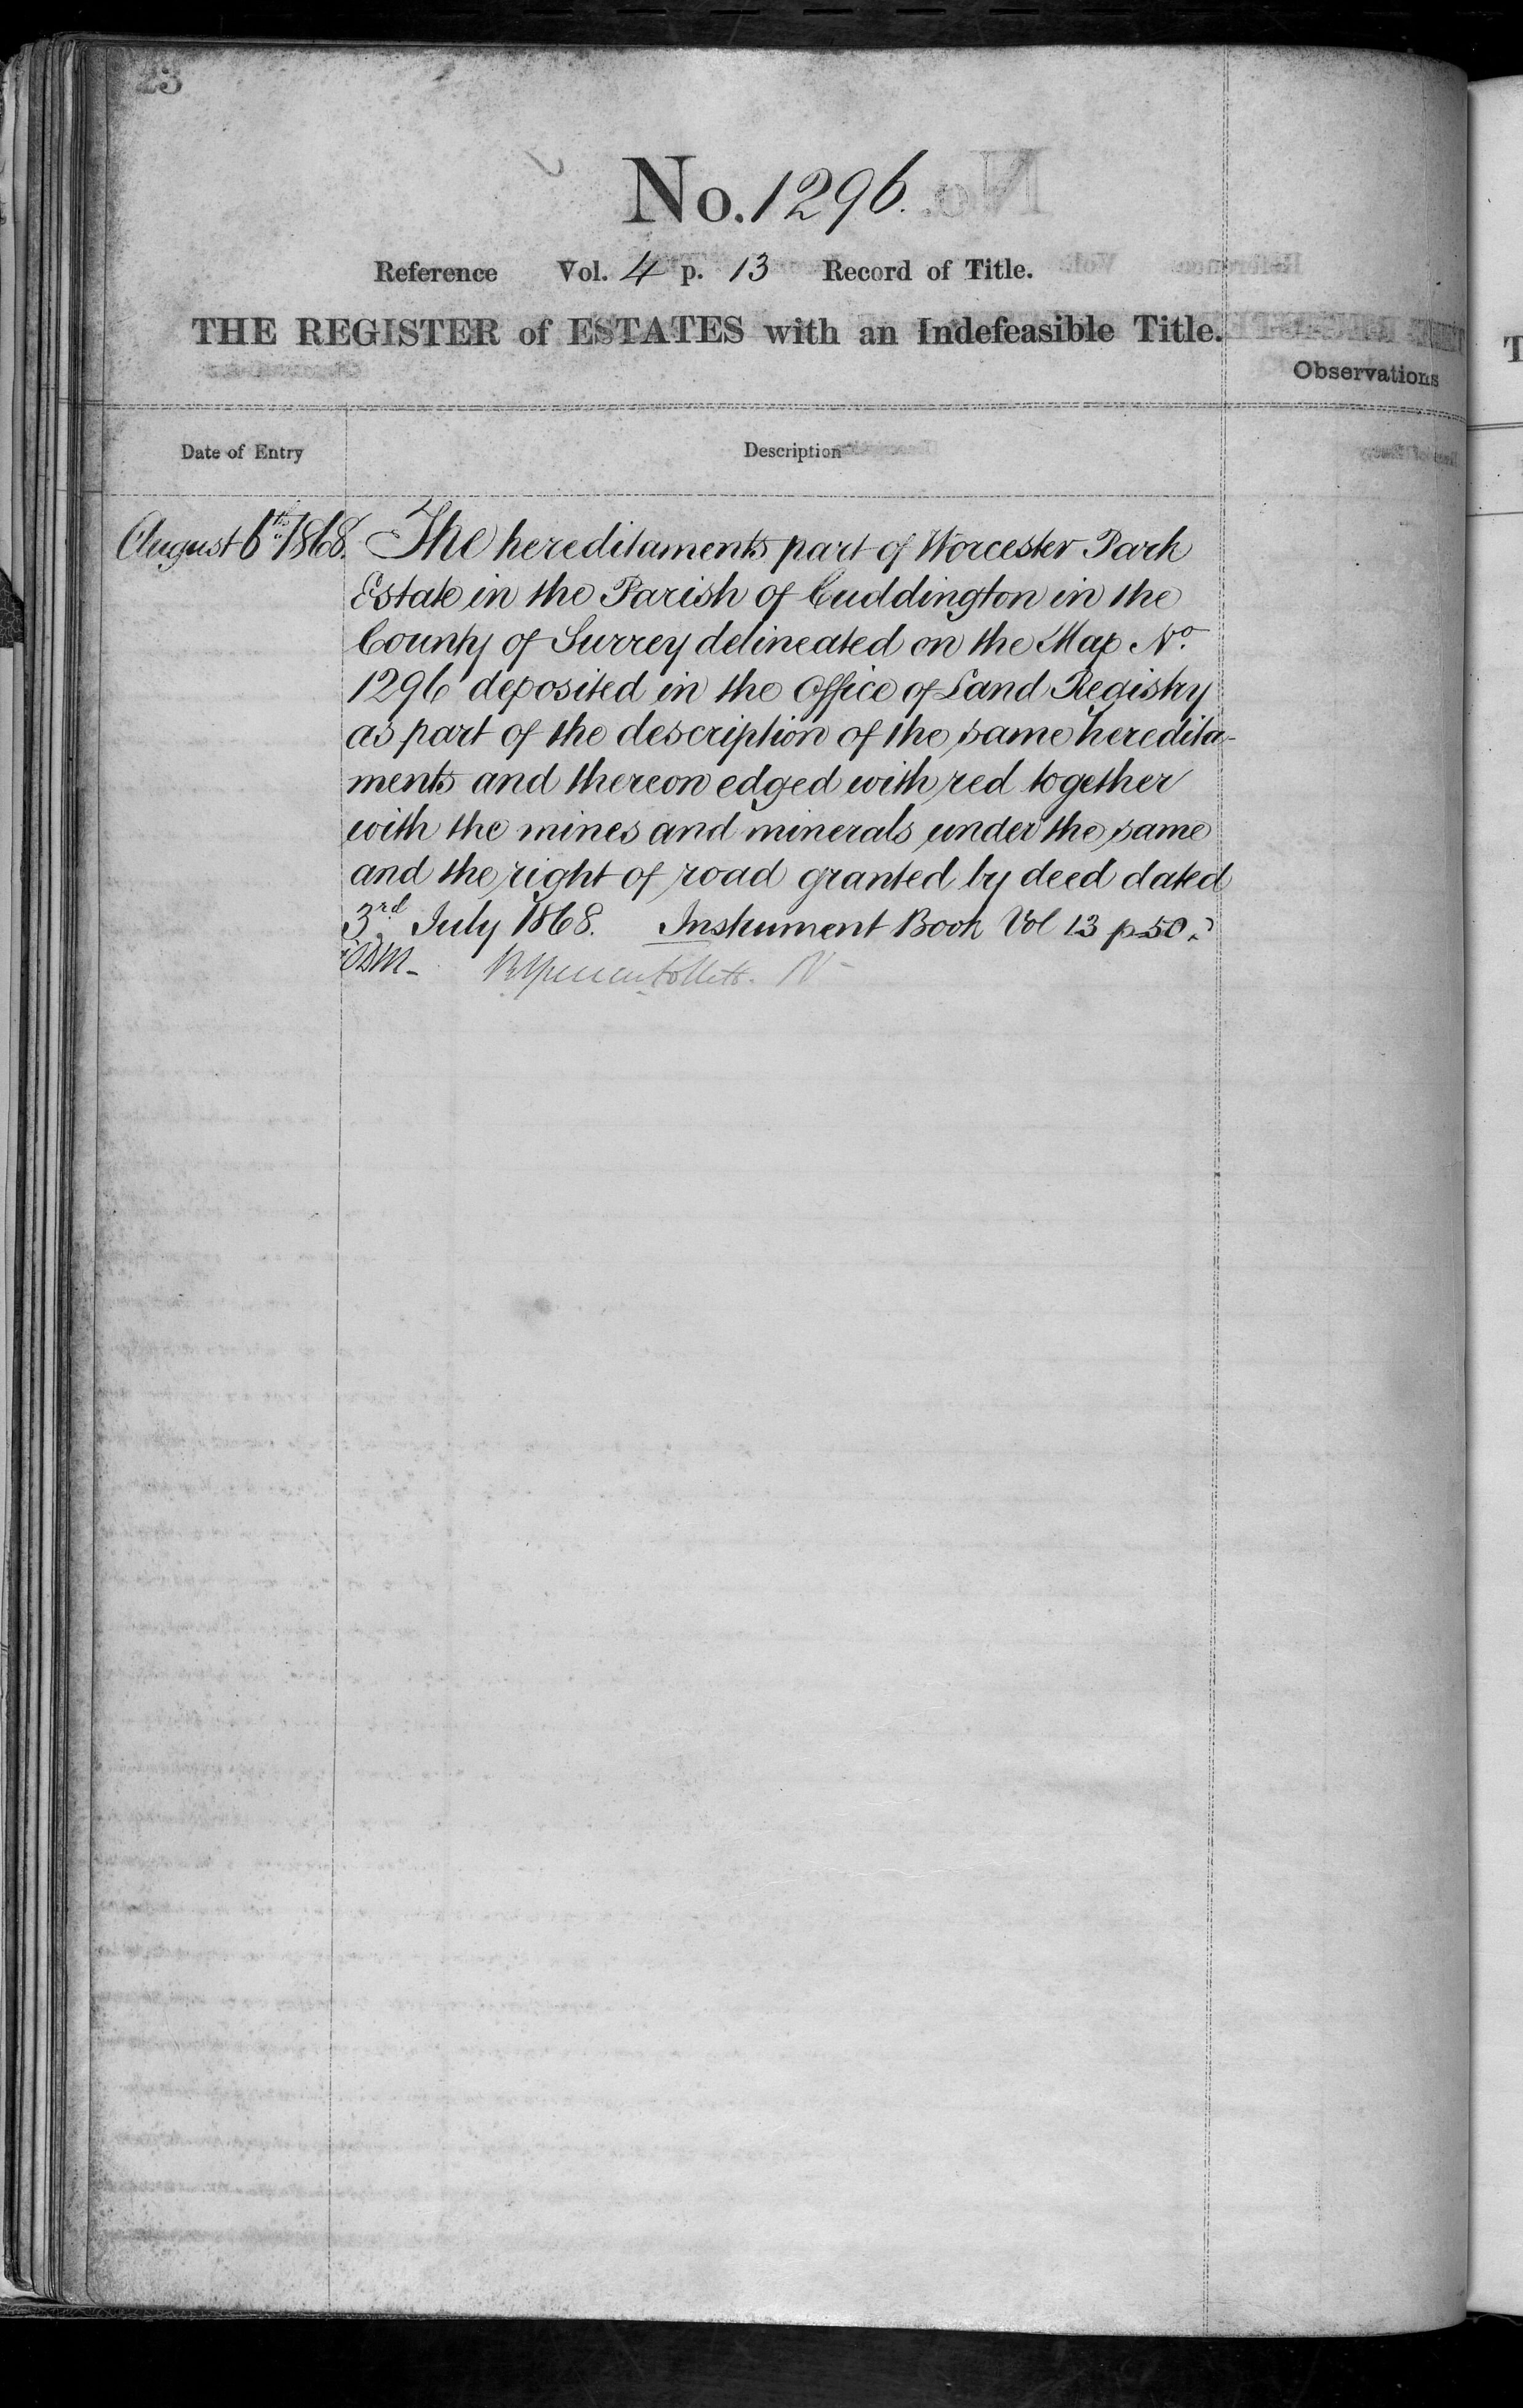 23
No. 1296.
Reference Vol. 4 p. 13 Record of Title.
THE REGISTER of ESTATES with an Indefeasible Title.
Observations
Date of Entry Description
August 6th 1868. The hereditaments part of Worcester Park
Estate in the Parish of Cuddington in the
County of Surrey delineated on the Map No.
1296 deposited in the Office of Land Registry
as part of the description of the same heredita-
ments and thereon edged with red together
with the mines and minerals under the same
and the right of road granted by deed dated
3rd July 1868. Instrument Book Vol 13 p 50.